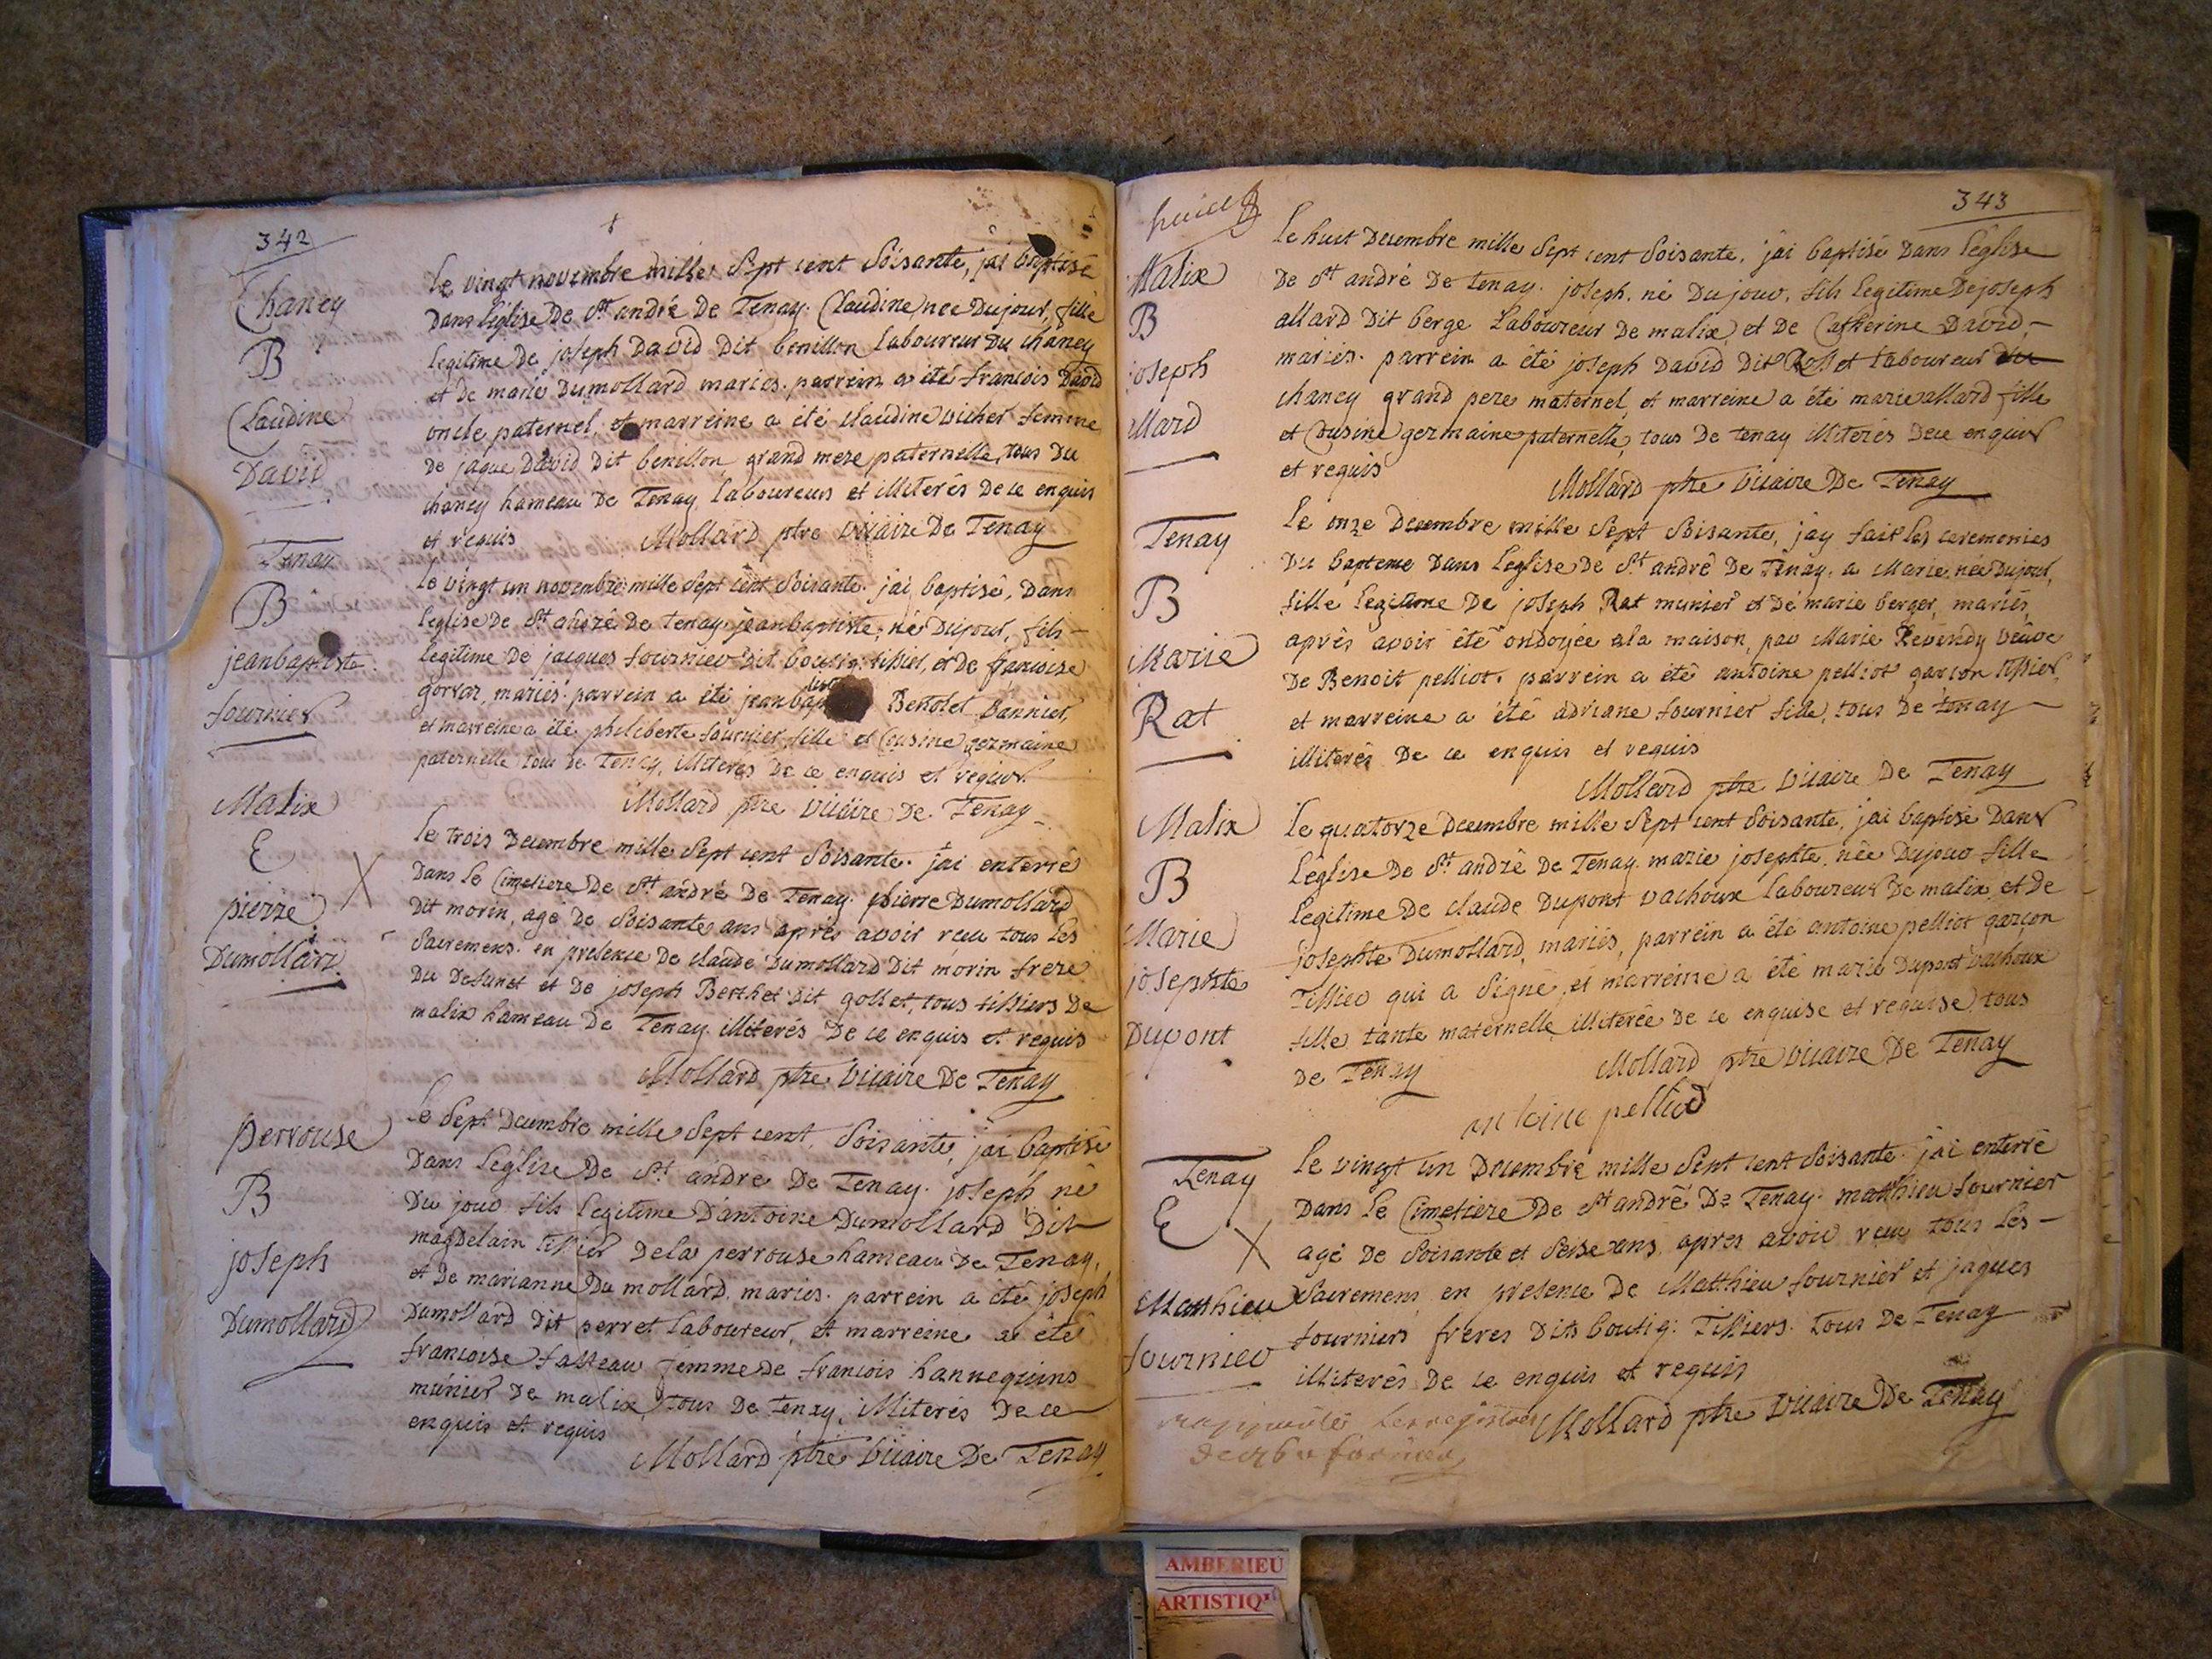 342
Chaney
B
Claudine
David
Le vingt novembre mille Sept cent Soisante, j'ai baptisé
Dans l'église De St andré De Tenay. Claudine née Dujour, fille
legitime De joseph David Dit benillon laboureur Du chaney
et de marie Dumollard mariés. parrein a été francois David
oncle paternel, et marreine a été claudine vicher femme
De jaque David Dit benillon grand mere paternelle, tous Du
chaney hameau De Tenay, laboureurs et illiterés De ce enquis
et requis Mollard ptre vicaire De Tenay
Tenay
B
jeanbaptiste
fournier
Le vingt un novembre mille Sept cent Soisante. j'ai baptisé, Dans
l'eglise De St andré De Tenay jeanbaptiste, né Dujour, fils
legitime De jacques fournier dit boutig: tissier, et De francoise
gorraz, mariés. parrein a été jeanbaptiste Bertolet bannier,
et marreine a été philiberte fournier fille et Cousine germaine
paternelle tous De Tenay, illiterés De ce enquis et requis
Mollard ptre vicaire De Tenay
Malix
E
pierre
Dumollard
X
Le trois Decembre mille Sept cent Soisante. j'ai enterré
Dans le Cimetiere De St andré De Tenay. pierre Dumollard
Dit morin, agé De Soisante ans après avoir reçu tous les
Sacremens. en presence De claude Dumollard Dit morin frere
Du Defunct et De joseph Berthet Dit gollet, tous tissiers De
malix hameau De Tenay. illiterés De ce enquis et requis
Mollard ptre vicaire De Tenay
perrouse
B
joseph
Dumollard
Le Sept Decembre mille Sept cent, Soisante, j'ai baptisé
Dans l'église De St andré De Tenay. joseph, né
Du jour fils legitime D'antoine Dumollard Dit
magdelain tissier De la perrouse hameau De Tenay,
et De marianne Du mollard, mariés. parrein a été joseph
Dumollard Dit perret laboureur, et marreine a été
francoise femme De francois hannequins
munier De malix, tous De Tenay, illiterés De ce
enquis et requis
Mollard ptre vicaire De Tenay
343
Malix
B
joseph
allard
Le huit Decembre mille Sept cent Soisante, j'ai baptisé Dans l'église
De St andré De tenay. joseph. né Du jour, fils legitime De joseph
allard Dit berge Laboureur De malix, et De Catherine David
mariés. parrein a été joseph David Dit laboureur du
chaney grand pere maternel, et marreine a été marie allard fille
et Cousine germaine paternelle, tous De tenay illiterés De ce enquis
et requis
Mollard ptre vicaire De Tenay
Tenay
B
Marie
Rat
Le onze Decembre mille Sept Soisante, jay fait les ceremonies
Du bapteme Dans L'eglise De St andré De Tenay. a Marie, née Dujour,
fille legitime De joseph Rat munier et De marie berger, mariés,
après avoir été ondoyée ala maison, par Marie Revendy veuve
De Benoit pelliot. parrein a été antoine pelliot garçon tissier,
et marreine a été adriane fournier fille, tous De tenay
illiterés De ce enquis et requis
Mollard ptre vicaire De Tenay
Malix
B
Marie
josephte
Dupont
Le quatorze Decembre mille Sept cent Soisante, j'ai baptisé Dans
l'église De St andré De Tenay. marie josephte, née Dujour fille
legitime De claude Dupont vachoux laboureur De malix, et De
josephte Dumollard, mariés, parrein a été antoine pelliot garçon
Tissier qui a Signé, et marreine a été marie Dupont vachoux
fille tante maternelle, illiterée De ce enquise et requise, tous
De Tenay Mollard ptre vicaire De Tenay
antoine
Tenay
E
X
Matthieu
fournier
Le vingt un Decembre mille Sept cent Soisante. j'ai enterré
Dans le Cimetiere De St andré De Tenay. matthieu fournier
agé De Soisante et Seise ans, apres avoir reçu tous les
Sacremens, en presence De Matthieu fournier et jaques
fourniers freres Dits boutig: Tissiers. tous De Tenay
illiterés De ce enquis et requis
Mollard ptre vicaire De Tenay
AMBERIEU
ARTISTIQ